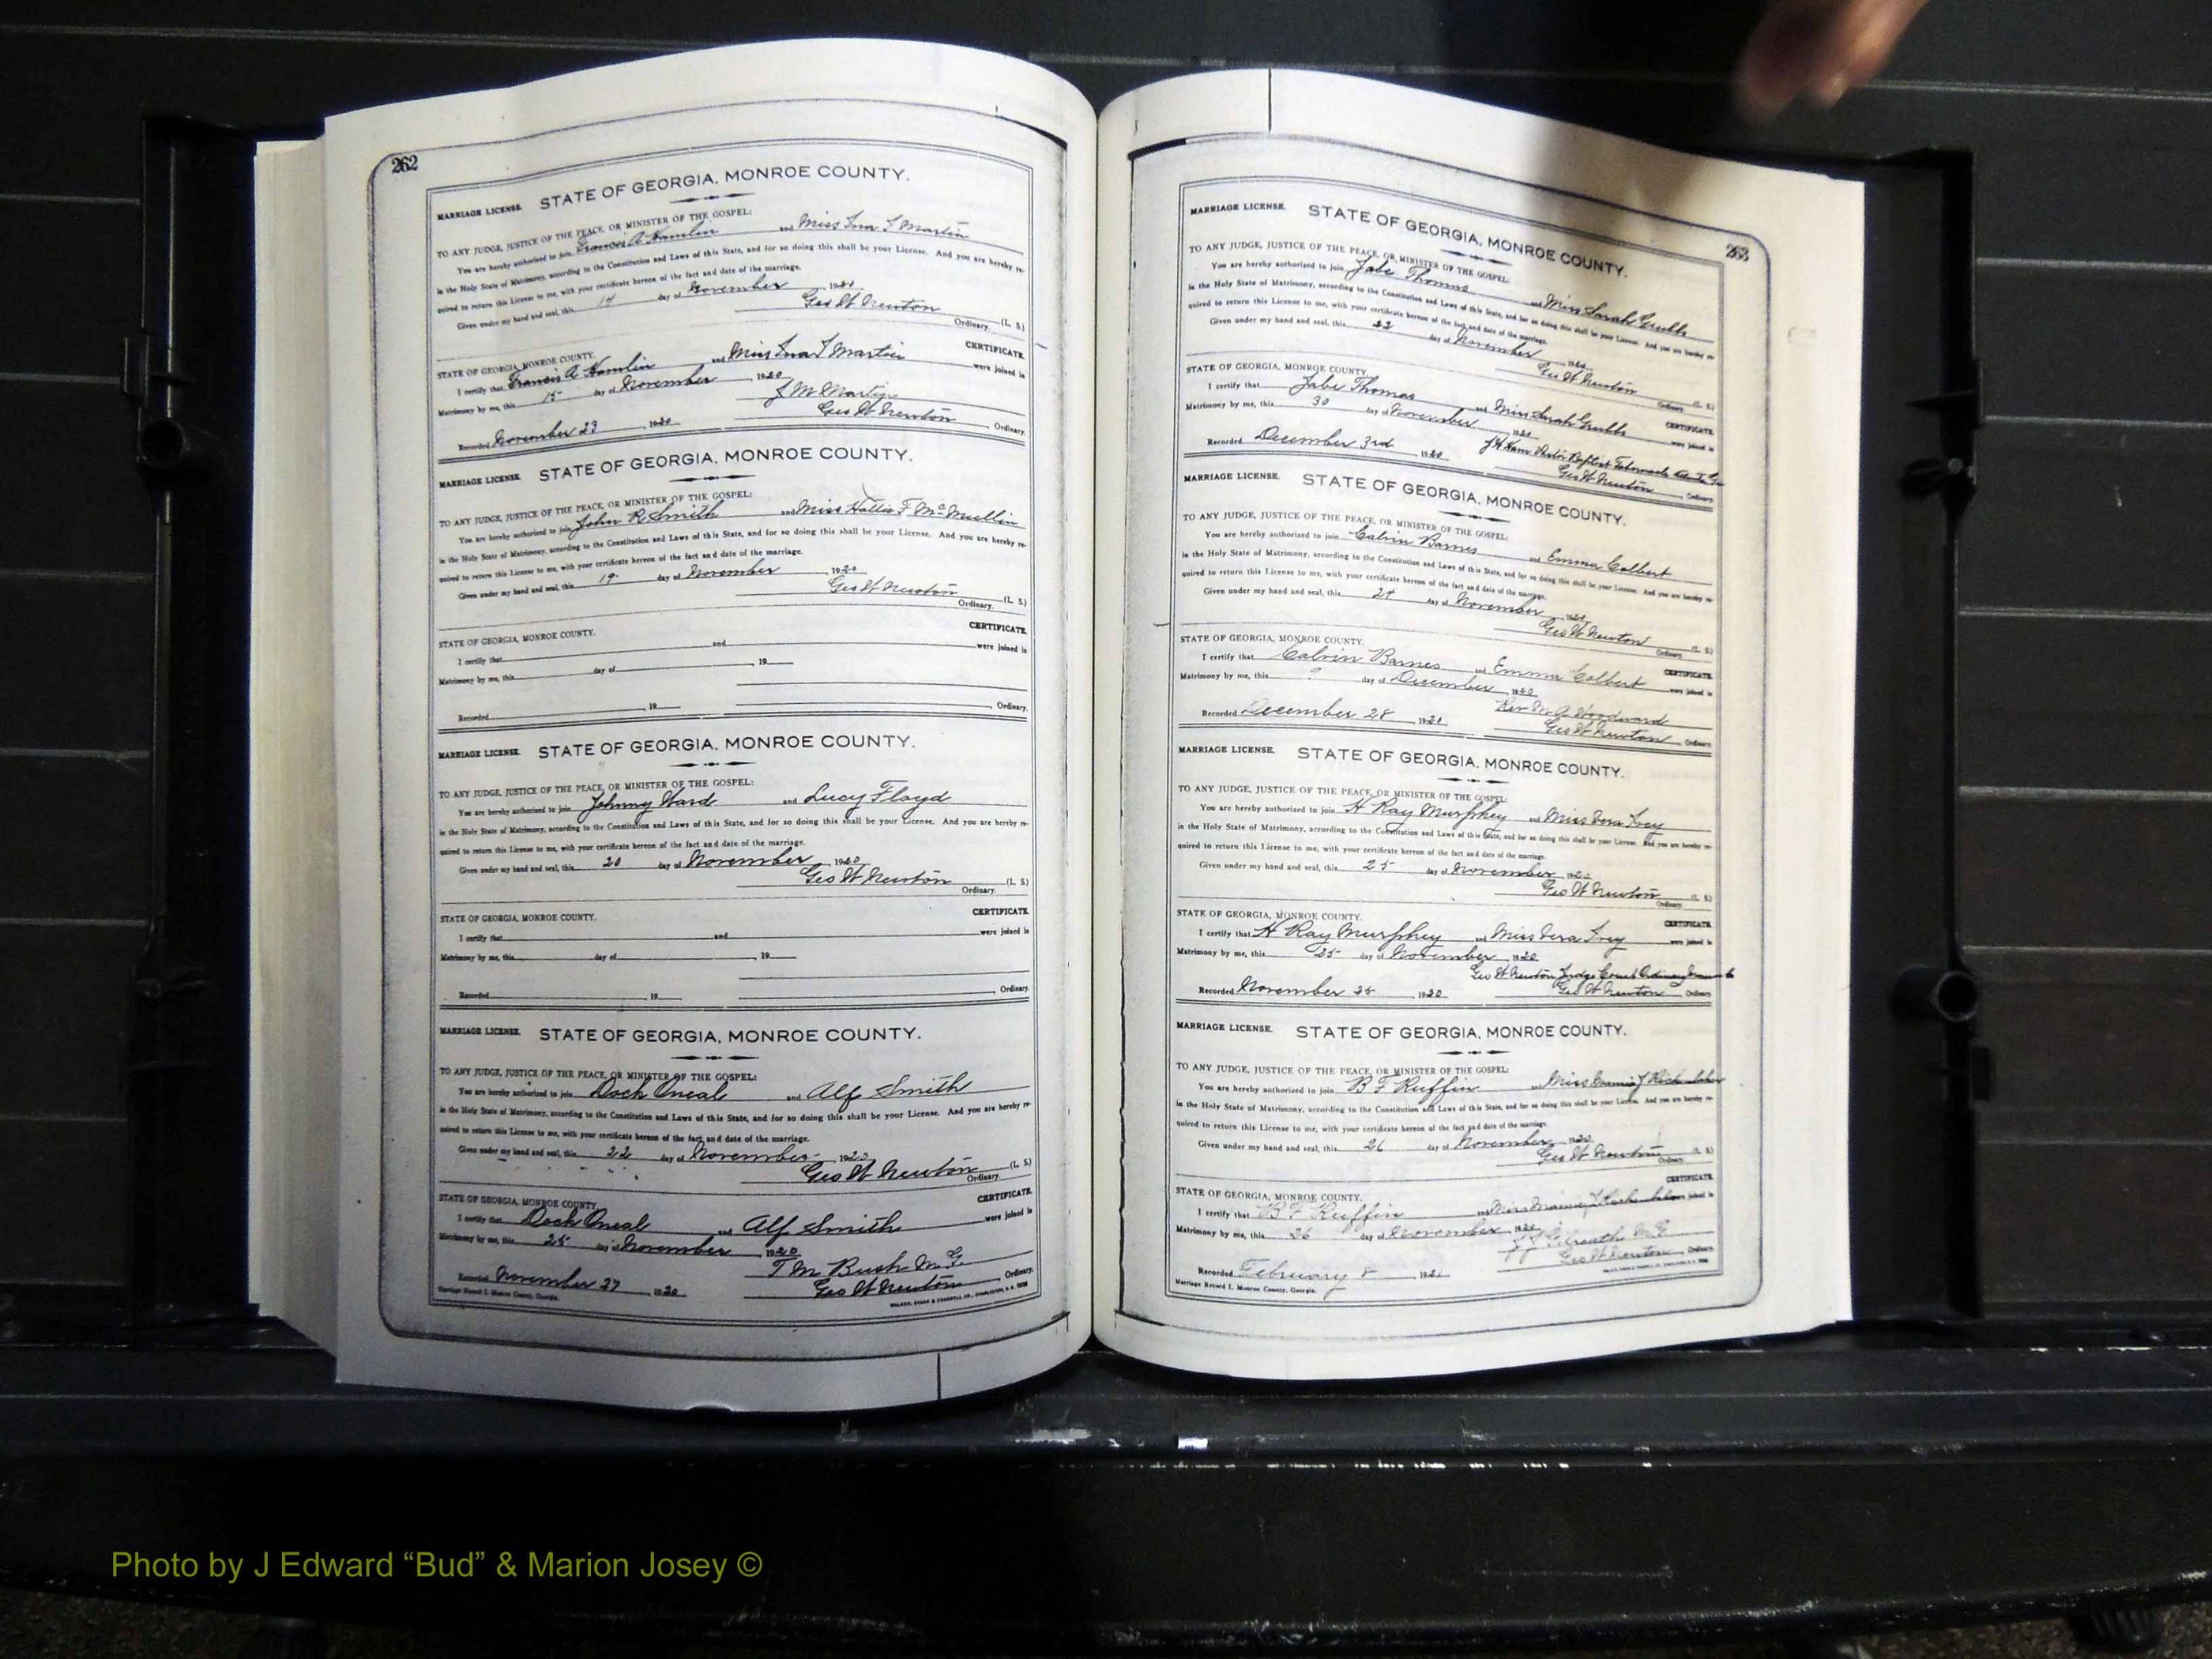 262
MARRIAGE LICENSE. STATE OF GEORGIA, MONROE COUNTY.
TO ANY JUDGE, JUSTICE OF THE PEACE, OR MINISTER OF THE GOSPEL:
You are hereby authorized to join Francis A Hamlin and Miss Iva T Martin
in the Holy State of Matrimony, according to the Constitution and Laws of this State, and for so doing this shall be your License. And you are hereby re-
quired to return this License to me, with your certificate hereon of the fact and date of the marriage.
Given under my hand and seal, this 14 day of November 1920
Geo W Newton (L. S.)
Ordinary.
STATE OF GEORGIA, MONROE COUNTY. CERTIFICATE.
I certify that Francis A Hamlin and Miss Iva T Martin were joined in
Matrimony by me, this 15 day of November, 1920
J M Martin
Recorded November 23, 1920 Geo W Newton Ordinary.
MARRIAGE LICENSE. STATE OF GEORGIA, MONROE COUNTY.
TO ANY JUDGE, JUSTICE OF THE PEACE, OR MINISTER OF THE GOSPEL:
You are hereby authorized to join John R Smith and Miss Hattie F McMullin
in the Holy State of Matrimony, according to the Constitution and Laws of this State, and for so doing this shall be your License. And you are hereby re-
quired to return this License to me, with your certificate hereon of the fact and date of the marriage.
Given under my hand and seal, this 19 day of November, 1920
Geo W Newton (L. S.)
Ordinary.
STATE OF GEORGIA, MONROE COUNTY. CERTIFICATE.
I certify that and were joined in
Matrimony by me, this day of , 19
Recorded , 19 Ordinary.
MARRIAGE LICENSE. STATE OF GEORGIA, MONROE COUNTY.
TO ANY JUDGE, JUSTICE OF THE PEACE, OR MINISTER OF THE GOSPEL:
You are hereby authorized to join Johnny Ward and Lucy Floyd
in the Holy State of Matrimony, according to the Constitution and Laws of this State, and for so doing this shall be your License. And you are hereby re-
quired to return this License to me, with your certificate hereon of the fact and date of the marriage.
Given under my hand and seal, this 20 day of November, 1920
Geo W Newton (L. S.)
Ordinary.
STATE OF GEORGIA, MONROE COUNTY. CERTIFICATE.
I certify that and were joined in
Matrimony by me, this day of , 19
Recorded , 19 Ordinary.
MARRIAGE LICENSE. STATE OF GEORGIA, MONROE COUNTY.
TO ANY JUDGE, JUSTICE OF THE PEACE, OR MINISTER OF THE GOSPEL:
You are hereby authorized to join Dock Oneal and Alf Smith
in the Holy State of Matrimony, according to the Constitution and Laws of this State, and for so doing this shall be your License. And you are hereby re-
quired to return this License to me, with your certificate hereon of the fact and date of the marriage.
Given under my hand and seal, this 22 day of November 1920
Geo W Newton (L. S.)
Ordinary.
STATE OF GEORGIA, MONROE COUNTY. CERTIFICATE.
I certify that Dock Oneal and Alf Smith were joined in
Matrimony by me, this 25 day of November, 1920
T M Bush M.G.
Recorded November 27, 1920 Geo W Newton Ordinary.
Marriage Record I. Monroe County, Georgia. WALKER, EVANS & COGSWELL CO., CHARLESTON, S. C.
263
MARRIAGE LICENSE. STATE OF GEORGIA, MONROE COUNTY.
TO ANY JUDGE, JUSTICE OF THE PEACE, OR MINISTER OF THE GOSPEL:
You are hereby authorized to join Jabe Thomas and Miss Sarah Grubbs
in the Holy State of Matrimony, according to the Constitution and Laws of this State, and for so doing this shall be your License. And you are hereby re-
quired to return this License to me, with your certificate hereon of the fact and date of the marriage.
Given under my hand and seal, this 22 day of November, 1920
Geo W Newton (L. S.)
Ordinary.
STATE OF GEORGIA, MONROE COUNTY. CERTIFICATE.
I certify that Jabe Thomas and Miss Sarah Grubbs were joined in
Matrimony by me, this 30 day of November, 1920
Baptist Tabernacle
Recorded December 3rd 1920 Geo W Newton Ordinary.
MARRIAGE LICENSE. STATE OF GEORGIA, MONROE COUNTY.
TO ANY JUDGE, JUSTICE OF THE PEACE, OR MINISTER OF THE GOSPEL:
You are hereby authorized to join Calvin Barnes and Emma Colbert
in the Holy State of Matrimony, according to the Constitution and Laws of this State, and for so doing this shall be your License. And you are hereby re-
quired to return this License to me, with your certificate hereon of the fact and date of the marriage.
Given under my hand and seal, this 24 day of November, 1920
Geo W Newton (L. S.)
Ordinary.
STATE OF GEORGIA, MONROE COUNTY. CERTIFICATE.
I certify that Calvin Barnes and Emma Colbert were joined in
Matrimony by me, this ? day of December, 1920
Rev M A Woodward
Recorded December 28, 1920 Geo W Newton Ordinary.
MARRIAGE LICENSE. STATE OF GEORGIA, MONROE COUNTY.
TO ANY JUDGE, JUSTICE OF THE PEACE, OR MINISTER OF THE GOSPEL:
You are hereby authorized to join H Ray Murphey and Miss Vera Ivey
in the Holy State of Matrimony, according to the Constitution and Laws of this State, and for so doing this shall be your License. And you are hereby re-
quired to return this License to me, with your certificate hereon of the fact and date of the marriage.
Given under my hand and seal, this 25 day of November, 1920
Geo W Newton (L. S.)
Ordinary.
STATE OF GEORGIA, MONROE COUNTY. CERTIFICATE.
I certify that H Ray Murphey and Miss Vera Ivey were joined in
Matrimony by me, this 25 day of November, 1920
Geo W Newton Judge Court Ordinary
Recorded November 25, 1920 Geo W Newton Ordinary.
MARRIAGE LICENSE. STATE OF GEORGIA, MONROE COUNTY.
TO ANY JUDGE, JUSTICE OF THE PEACE, OR MINISTER OF THE GOSPEL:
You are hereby authorized to join B F Ruffin and Miss Mamie
in the Holy State of Matrimony, according to the Constitution and Laws of this State, and for so doing this shall be your License. And you are hereby re-
quired to return this License to me, with your certificate hereon of the fact and date of the marriage.
Given under my hand and seal, this 26 day of November, 1920
Geo W Newton (L. S.)
Ordinary.
STATE OF GEORGIA, MONROE COUNTY. CERTIFICATE.
I certify that B F Ruffin and Miss Mamie joined in
Matrimony by me, this 26 day of November, 1920
M G
Recorded February 8, 1921 Geo W Newton Ordinary.
Marriage Record I. Monroe County, Georgia.
Photo by J Edward “Bud” & Marion Josey ©